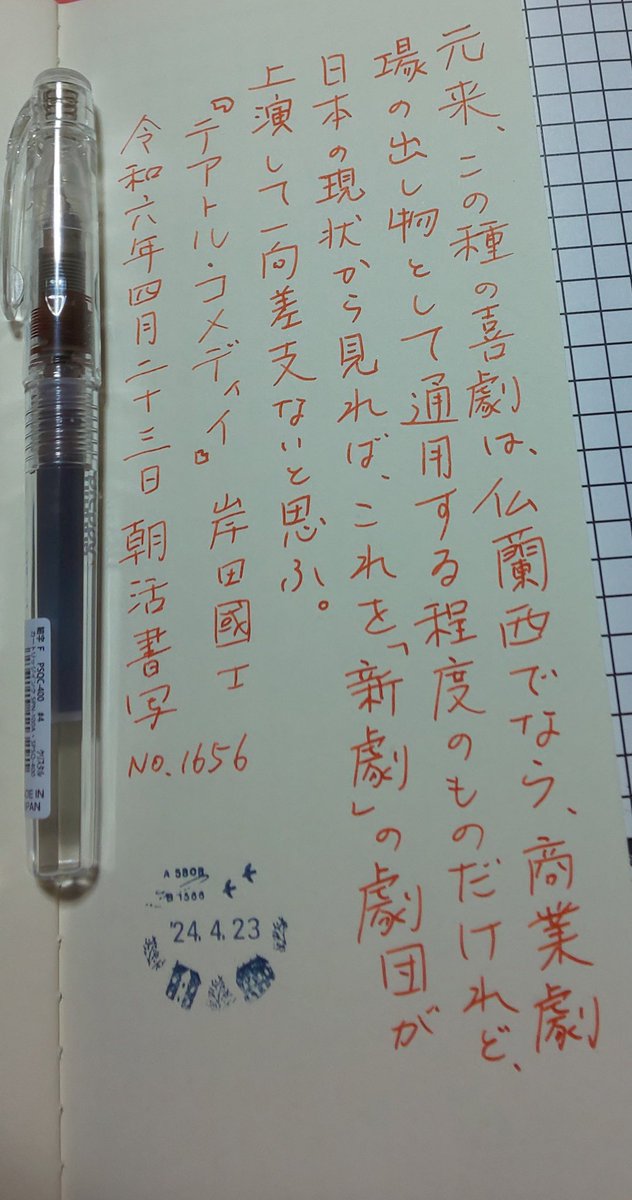 元来、この種の喜劇は、仏蘭西でなら、商業劇
場の出し物として通用する程度のものだけれど、
日本の現状から見れば、これを「新劇」の劇団が
上演して一向差支ないと思ふ。
『テアトル・コメディイ』 岸田國士
令和六年四月二十三日 朝活書写
No.1656
A 580B
B 1566
'24.4.23
細字 F PSQC-400 #4